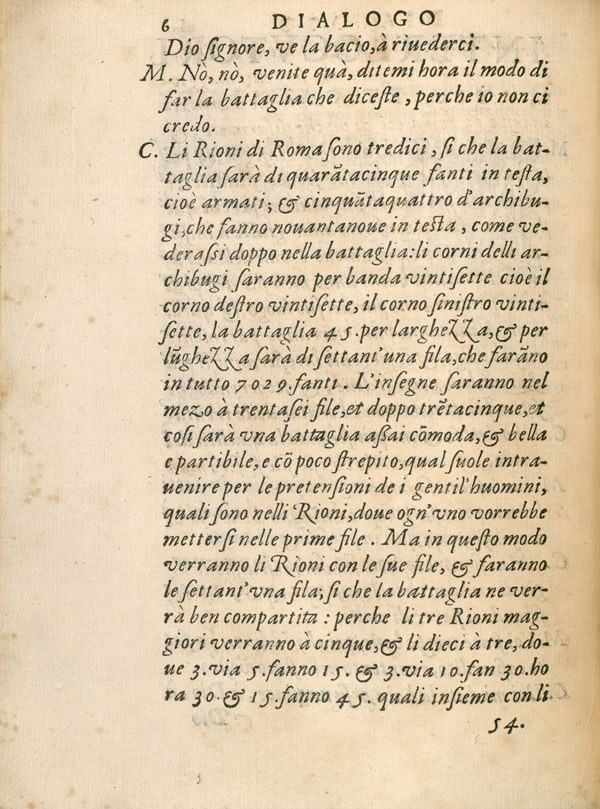 6 DIALOGO
Dio ſignore, ve la bacio, à riuederci.
M. Nò, nò, venite quà, ditemi hora il modo di
far la battaglia che diceſte, perche io non ci
credo.
C. Li Rioni di Roma ſono tredici, ſi che la bat-
taglia ſarà di quarãtacinque fanti in teſta,
cioè armati; & cinquãtaquattro d'archibu-
gi, che fanno nouantanoue in teſta, come ve-
deraſſi doppo nella battaglia: li corni delli ar-
chibugi ſaranno per banda vintiſette cioè il
corno deſtro vintiſette, il corno ſiniſtro vinti-
ſette, la battaglia 45. per larghezza, & per
lũghezza ſarà di ſettant'una fila, che farãno
in tutto 7029. fanti. L'inſegne ſaranno nel
mezo à trentaſei file, et doppo trẽtacinque, et
coſi ſarà vna battaglia aßai cõmoda, & bella
e partibile, e cõ poco ſtrepito, qual ſuole intra-
uenire per le pretenſioni de i gentil'huomini,
quali ſono nelli Rioni, doue ogn'vno vorrebbe
metterſi nelle prime file. Ma in queſto modo
verranno li Rioni con le ſue file, & faranno
le ſettant'vna fila; ſi che la battaglia ne ver-
rà ben compartita: perche li tre Rioni mag-
giori verranno à cinque, & li dieci à tre, do-
ue 3. via 5. fanno 15. & 3. via 10. fan 30. ho
ra 30. & 15. fanno 45. quali inſieme con li
54.